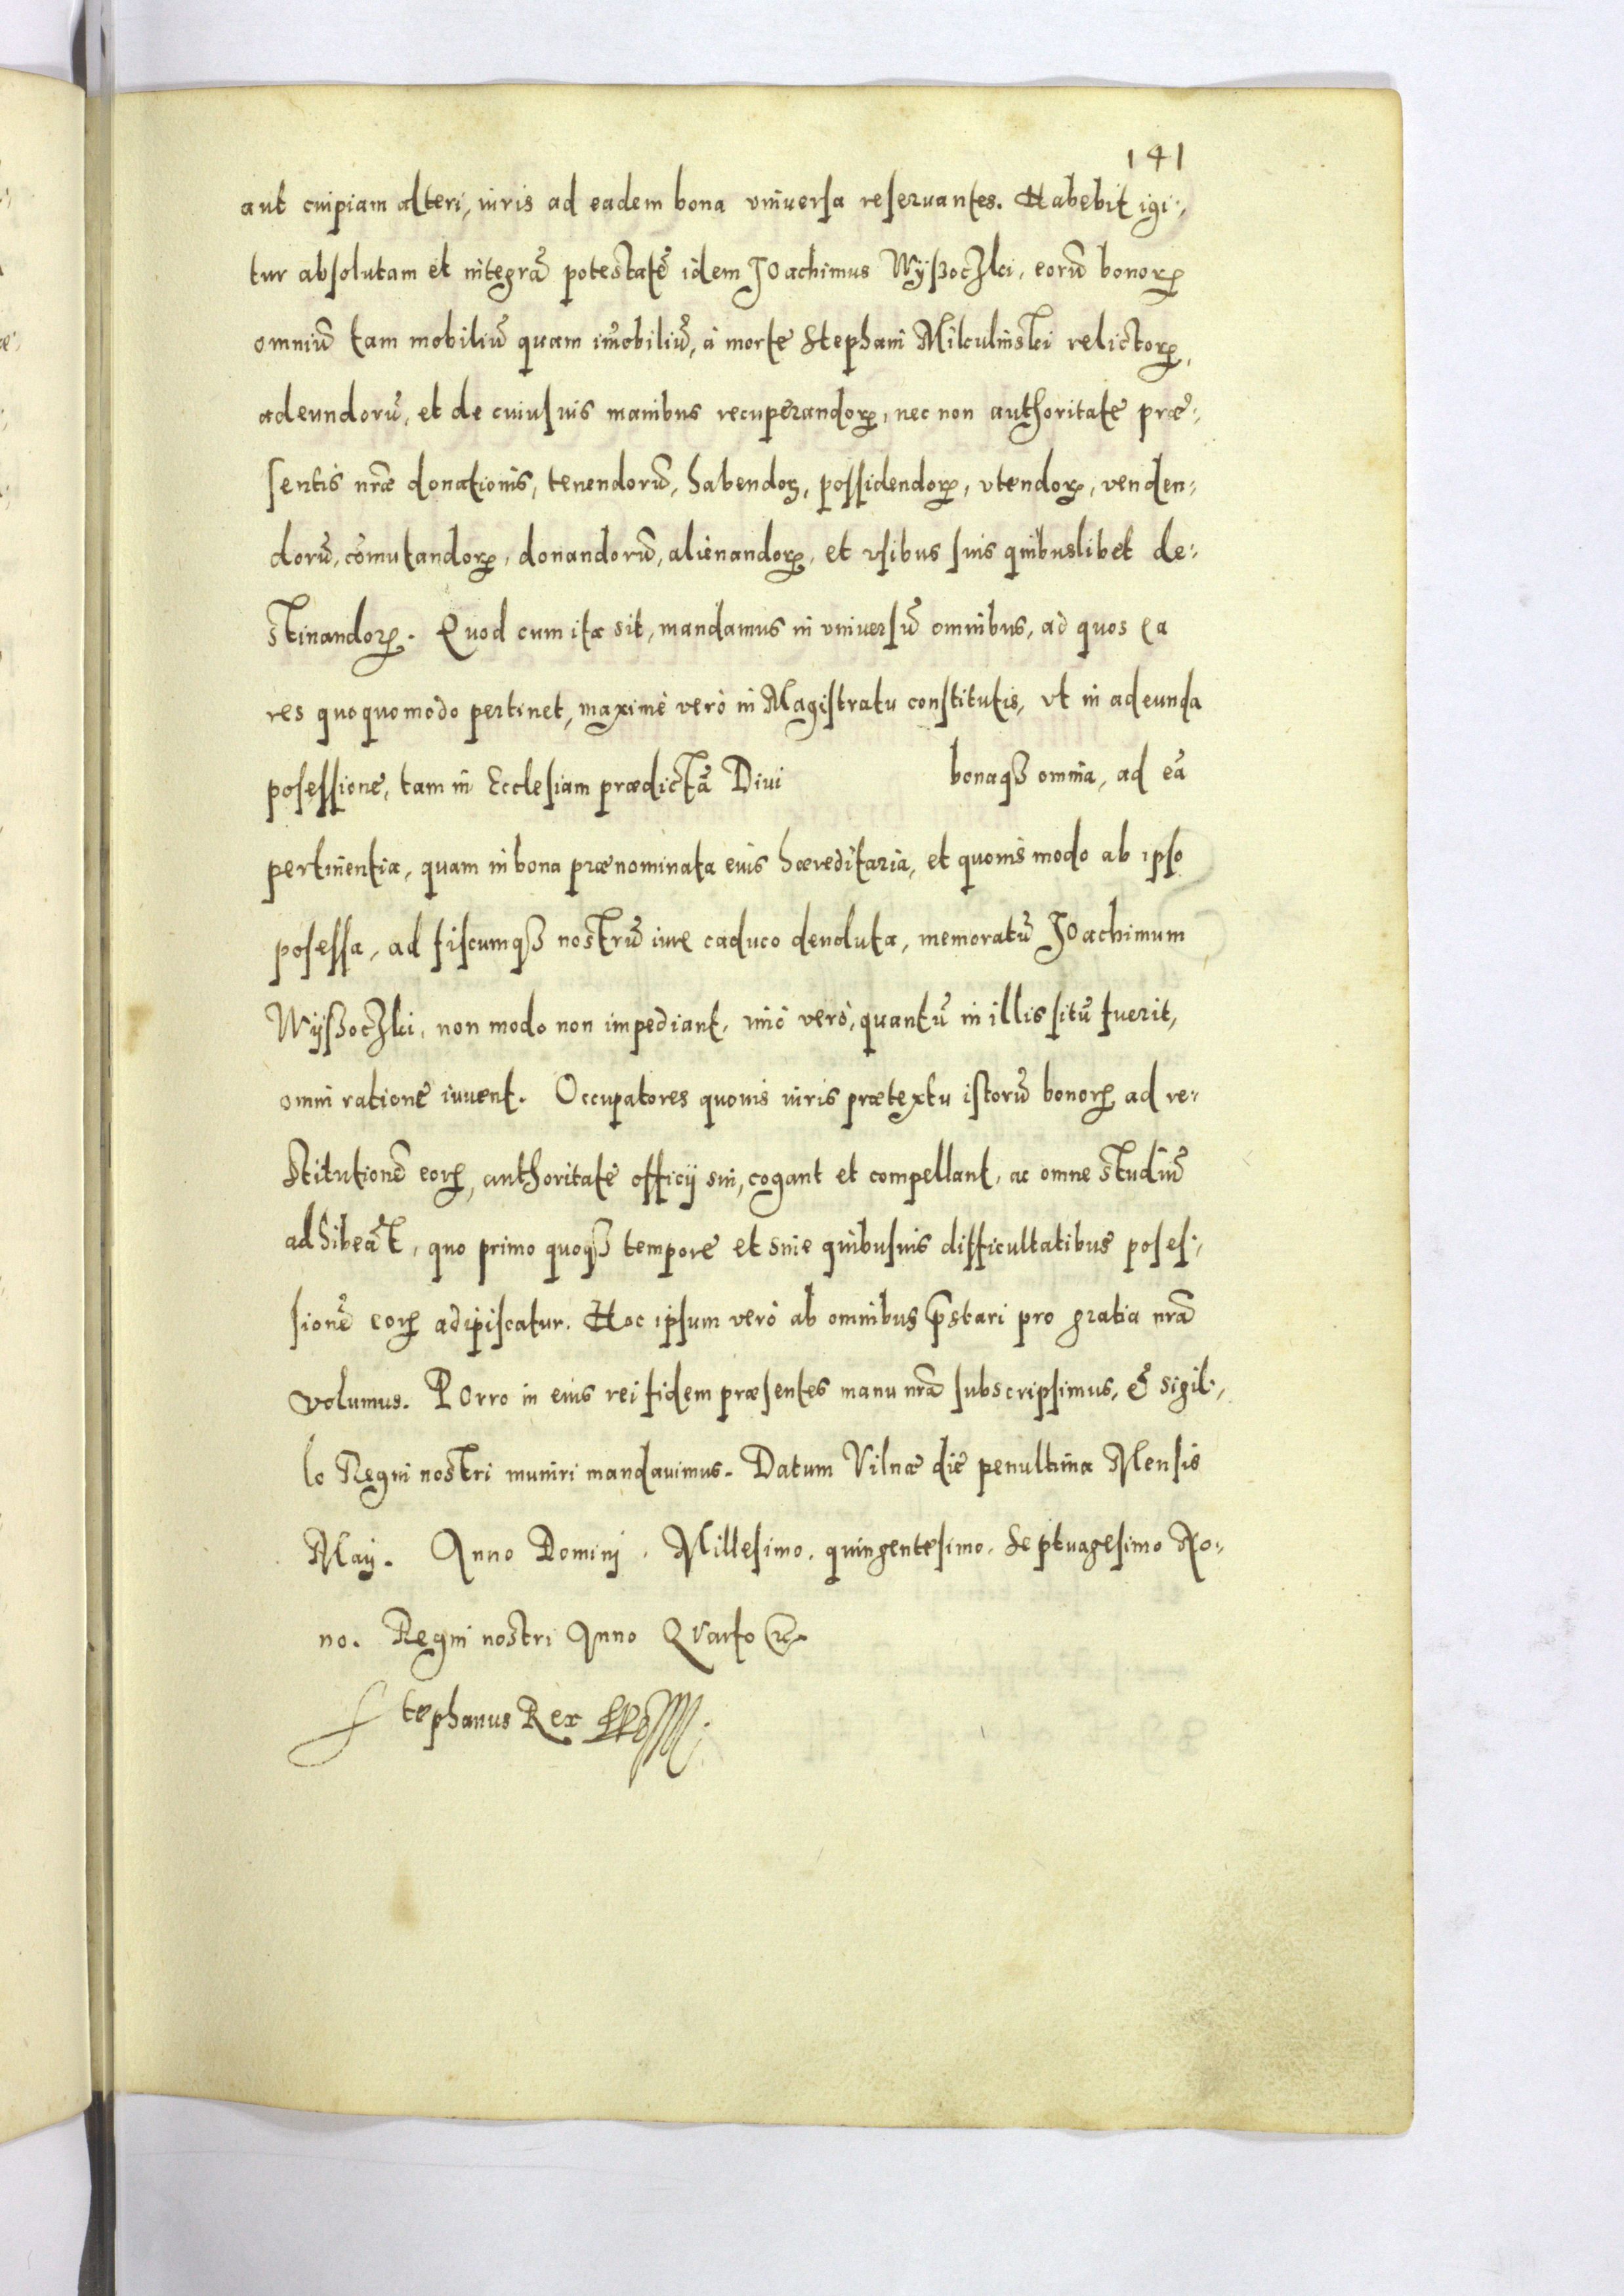 141
aut cuipiam alteri, iuris ad eadem bona vniuersa reseruantes. Habebit igi-,
tur absolutam et integrã potestatẽ idem Joachimus Wÿßoczki, eorũ bonorꝝ
omniũ tam mobiliũ quam im̃obiliũ, à morte Stephani Mikulinski relictorꝝ,
adeundorũ, et de cuiusuis manibus recuperandorꝝ, nec non authoritate præ-,
sentis nr̃æ donationis, tenendorũ, habendoꝝ, possidendorꝝ, vtendorꝝ, venden-,
dorũ, com̃utandorꝝ, donandorũ, alienandorꝝ, et vsibus suis quibuslibet de-,
stinandorꝝ. Quod cum ita sit, mandamus in vniuersũ omnibus, ad quos ea
res quoquomodo pertinet, maximè verò in Magistratu constitutis, vt in adeunda
posessione, tam in Ecclesiam prædictã Diui bonaqꝫ omnia, ad eã
pertinentia, quam in bona prænominata eius hæreditaria, et quouis modo ab ipso
posessa, ad fiscumqꝫ nostrũ iure caduco deuoluta, memoratũ Joachimum
Wÿßoczki, non modo non impediant, imò verò, quantũ in illis sitũ fuerit,
omni ratione iuuent. Occupatores quouis iuris prætextu istorũ bonorꝝ ad re-,
stitutionẽ eorꝝ, authoritate officij sui, cogant et compellant, ac omne studiũ
adhibeãt, quo primo quoqꝫ tempore et sine quibusuis difficultatibus poses-,
sionẽ eorꝝ adipiscatur. Hoc ipsum verò ab omnibus p̃stari pro gratia nr̃a
volumus. Porro in eius rei fidem præsentes manu nr̃a subscripsimus, & sigil-,
lo Regni nostri muniri mandauimus. Datum Vilnæ die penultima Mensis
Maij. Anno Domini. Millesimo. quingentesimo. Septuagesimo No-,
no. Regni nostri Anno Quarto
Stephanus Rex